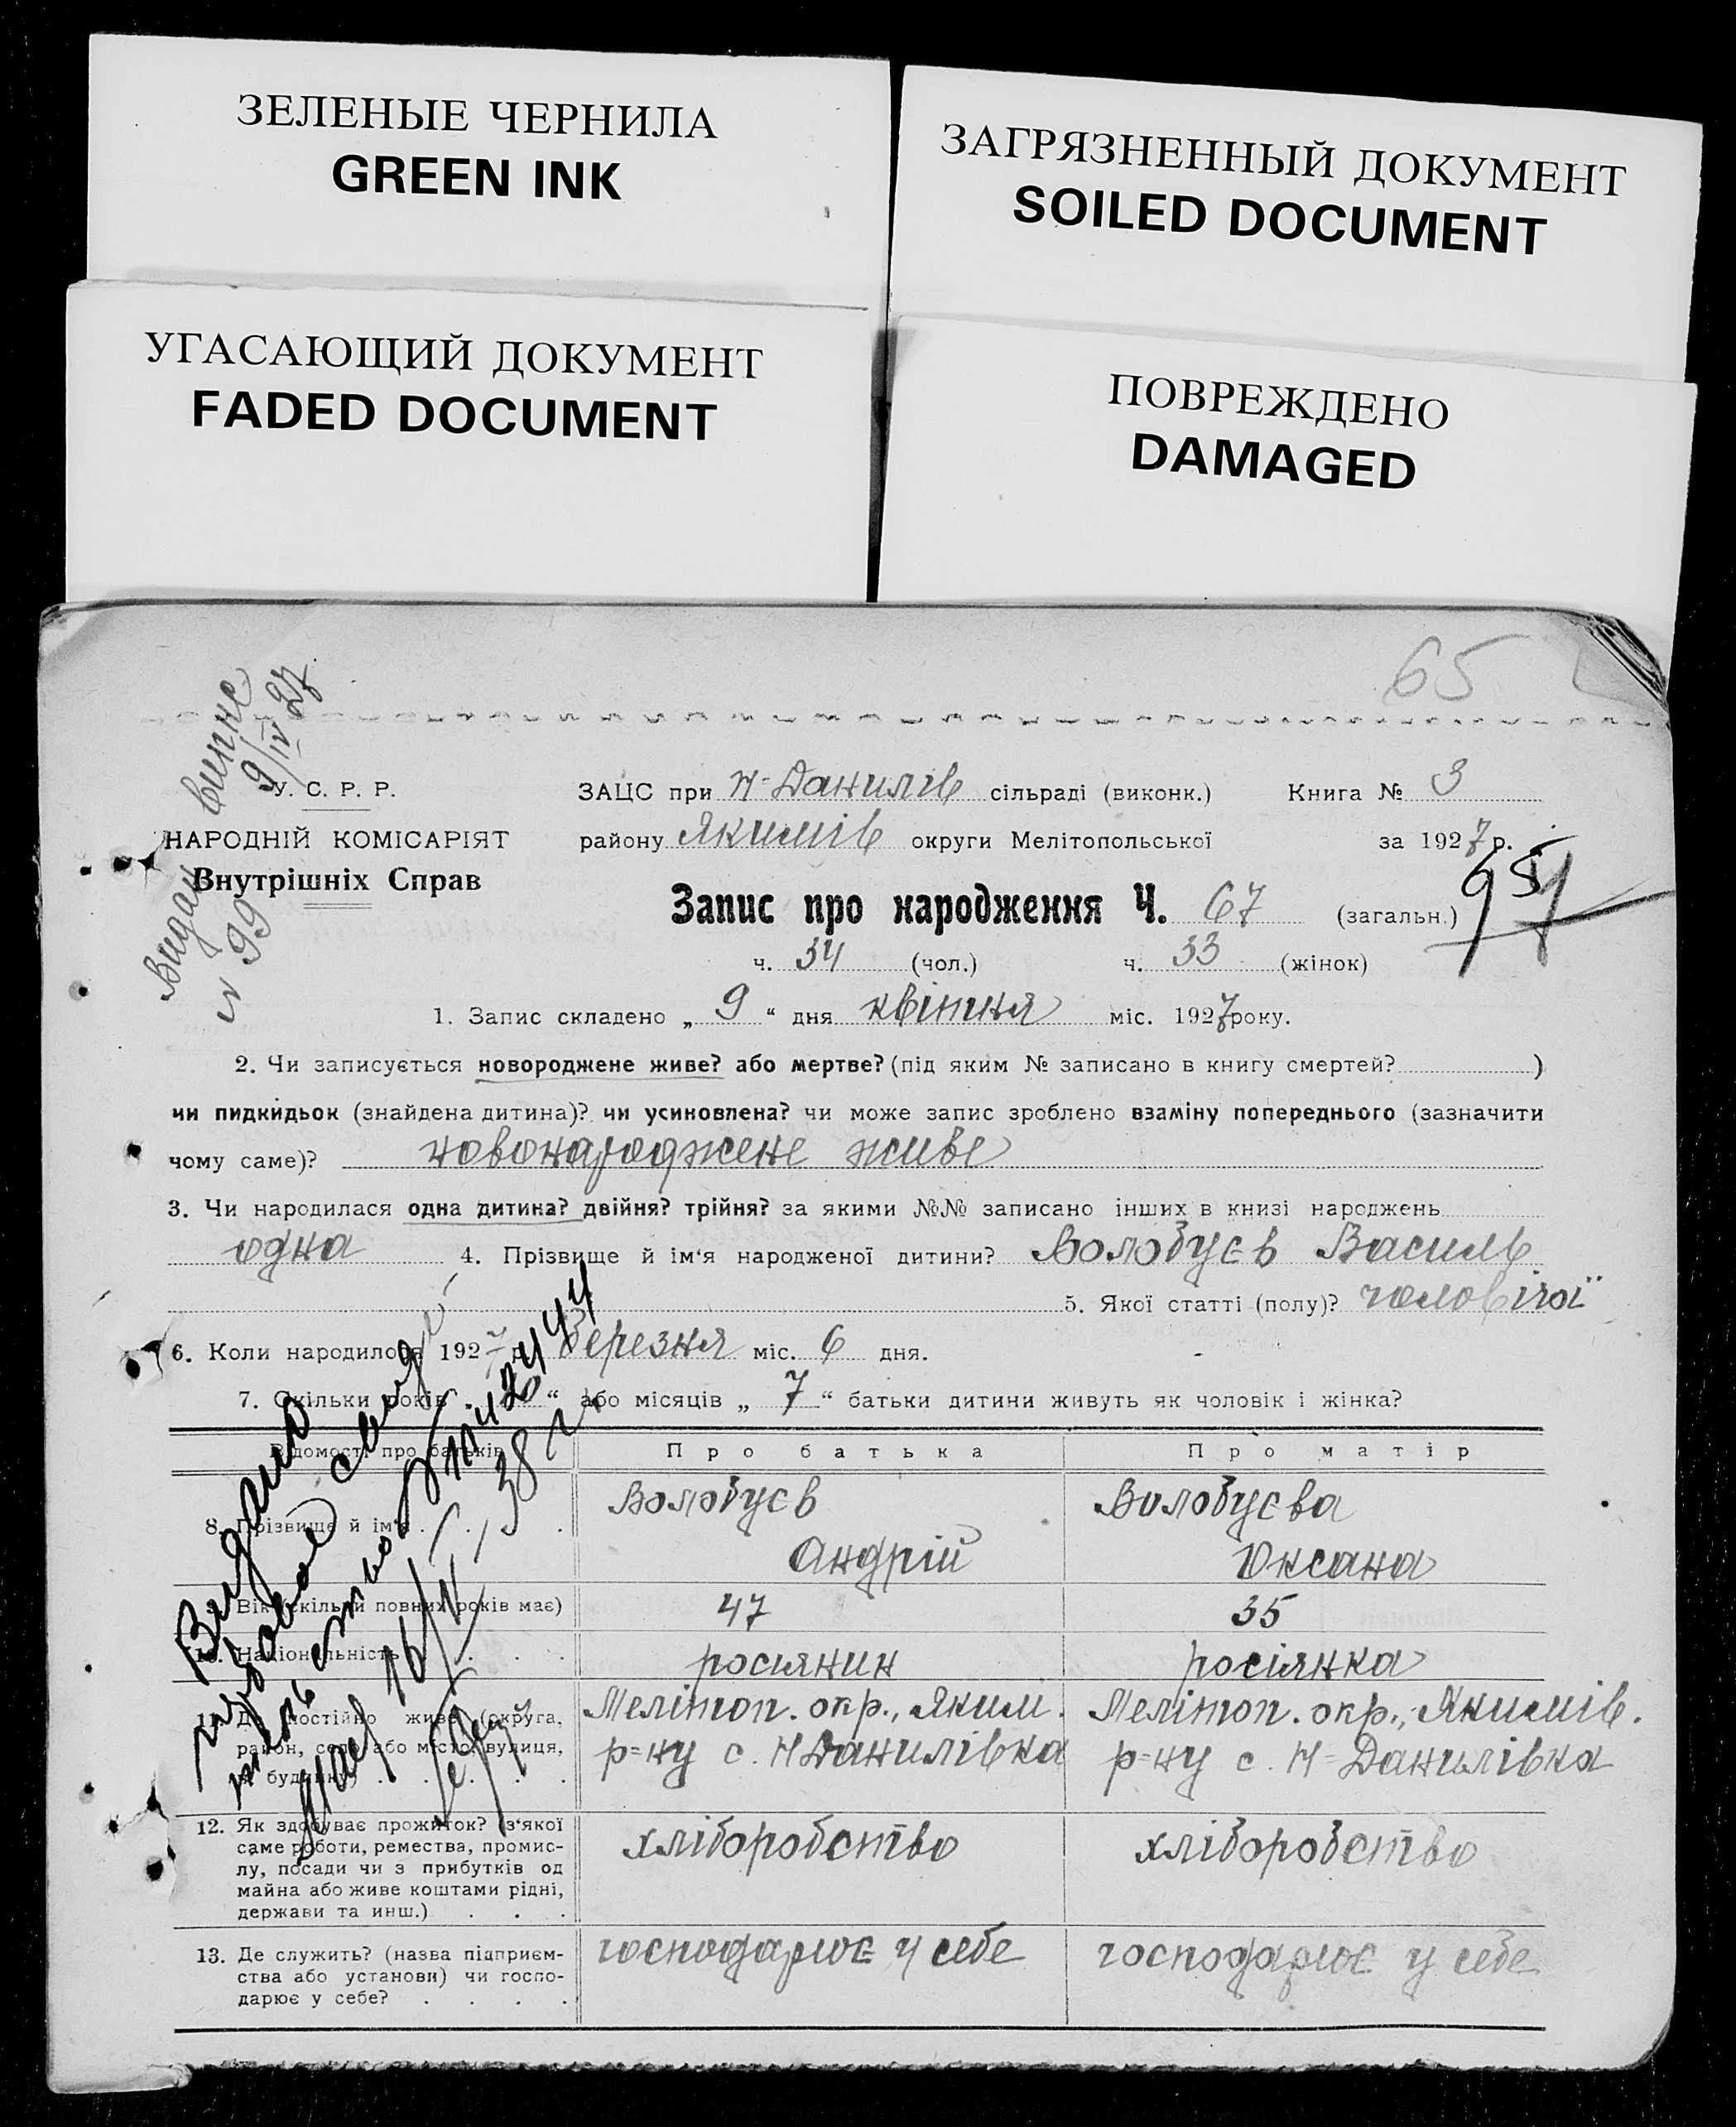 ЗЕЛЕНЫЕ ЧЕРНИЛА
GREEN INK
ЗАГРЯЗНЕННЫЙ ДОКУМЕНТ
SOILED DOCUMENT
УГАСАЮЩИЙ ДОКУМЕНТ
FADED DOCUMENT
ПОВРЕЖДЕНО
DAMAGED
65
9/IV 27
Видан
N 99
У. С. Р. Р.
НАРОДНІЙ КОМІСАРІЯТ
Внутрішніх Справ
ЗАЦС при Н-Данилів сільраді (виконк.) Книга № 3
району Якимів округи Мелітопольської за 1927 р.
Запис про народження Ч. 67 (загальн.)
ч. 34 (чол.) ч. 33 (жінок)
1. Запис складено „ 9 “ дня квітня міс. 1927 року.
2. Чи записується новороджене живе? або мертве? (під яким № записано в книгу смертей? )
чи пидкидьок (знайдена дитина)? чи усиновлена? чи може запис зроблено взаміну попереднього (зазначити
чому саме)? новонароджене живе
3. Чи народилася одна дитина? двійня? трійня? за якими №№ записано інших в книзі народжень
одна 4. Прізвище й ім'я народженої дитини? Волобуєв Василь
5. Якої статті (полу)? чоловічої
6. Коли народилося 1927 р. Березня міс. 6 дня.
7. Скільки років „ “ або місяців „ 7 “ батьки дитини живуть як чоловік і жінка?
Відомості про батьків Про батька Про матір
8. Прізвище й ім'я . . . Волобуєв Андрій Волобуєва Оксана
9. Вік (скільки повних років має) 47 35
10. Національність . . . росиянин росіянка
11. Де постійно живе (округа,
район, село або місто, вулиця,
№ будинку) . . . .
Мелітоп. окр., Яким.
р=ну с. Н Данилівка
Мелітоп. окр., Якимів.
р=ну с. Н=Данилівка
12. Як здобуває прожиток? (з'якої
саме роботи, ремества, промис-
лу, посади чи з прибутків од
майна або живе коштами рідні,
держави та инш.) . . .
хліборобство хліборобство
13. Де служить? (назва підприєм-
ства або установи) чи госпо-
дарює у себе? . . . .
господарює у себе господарює у себе
Видано
16/II-38 г.